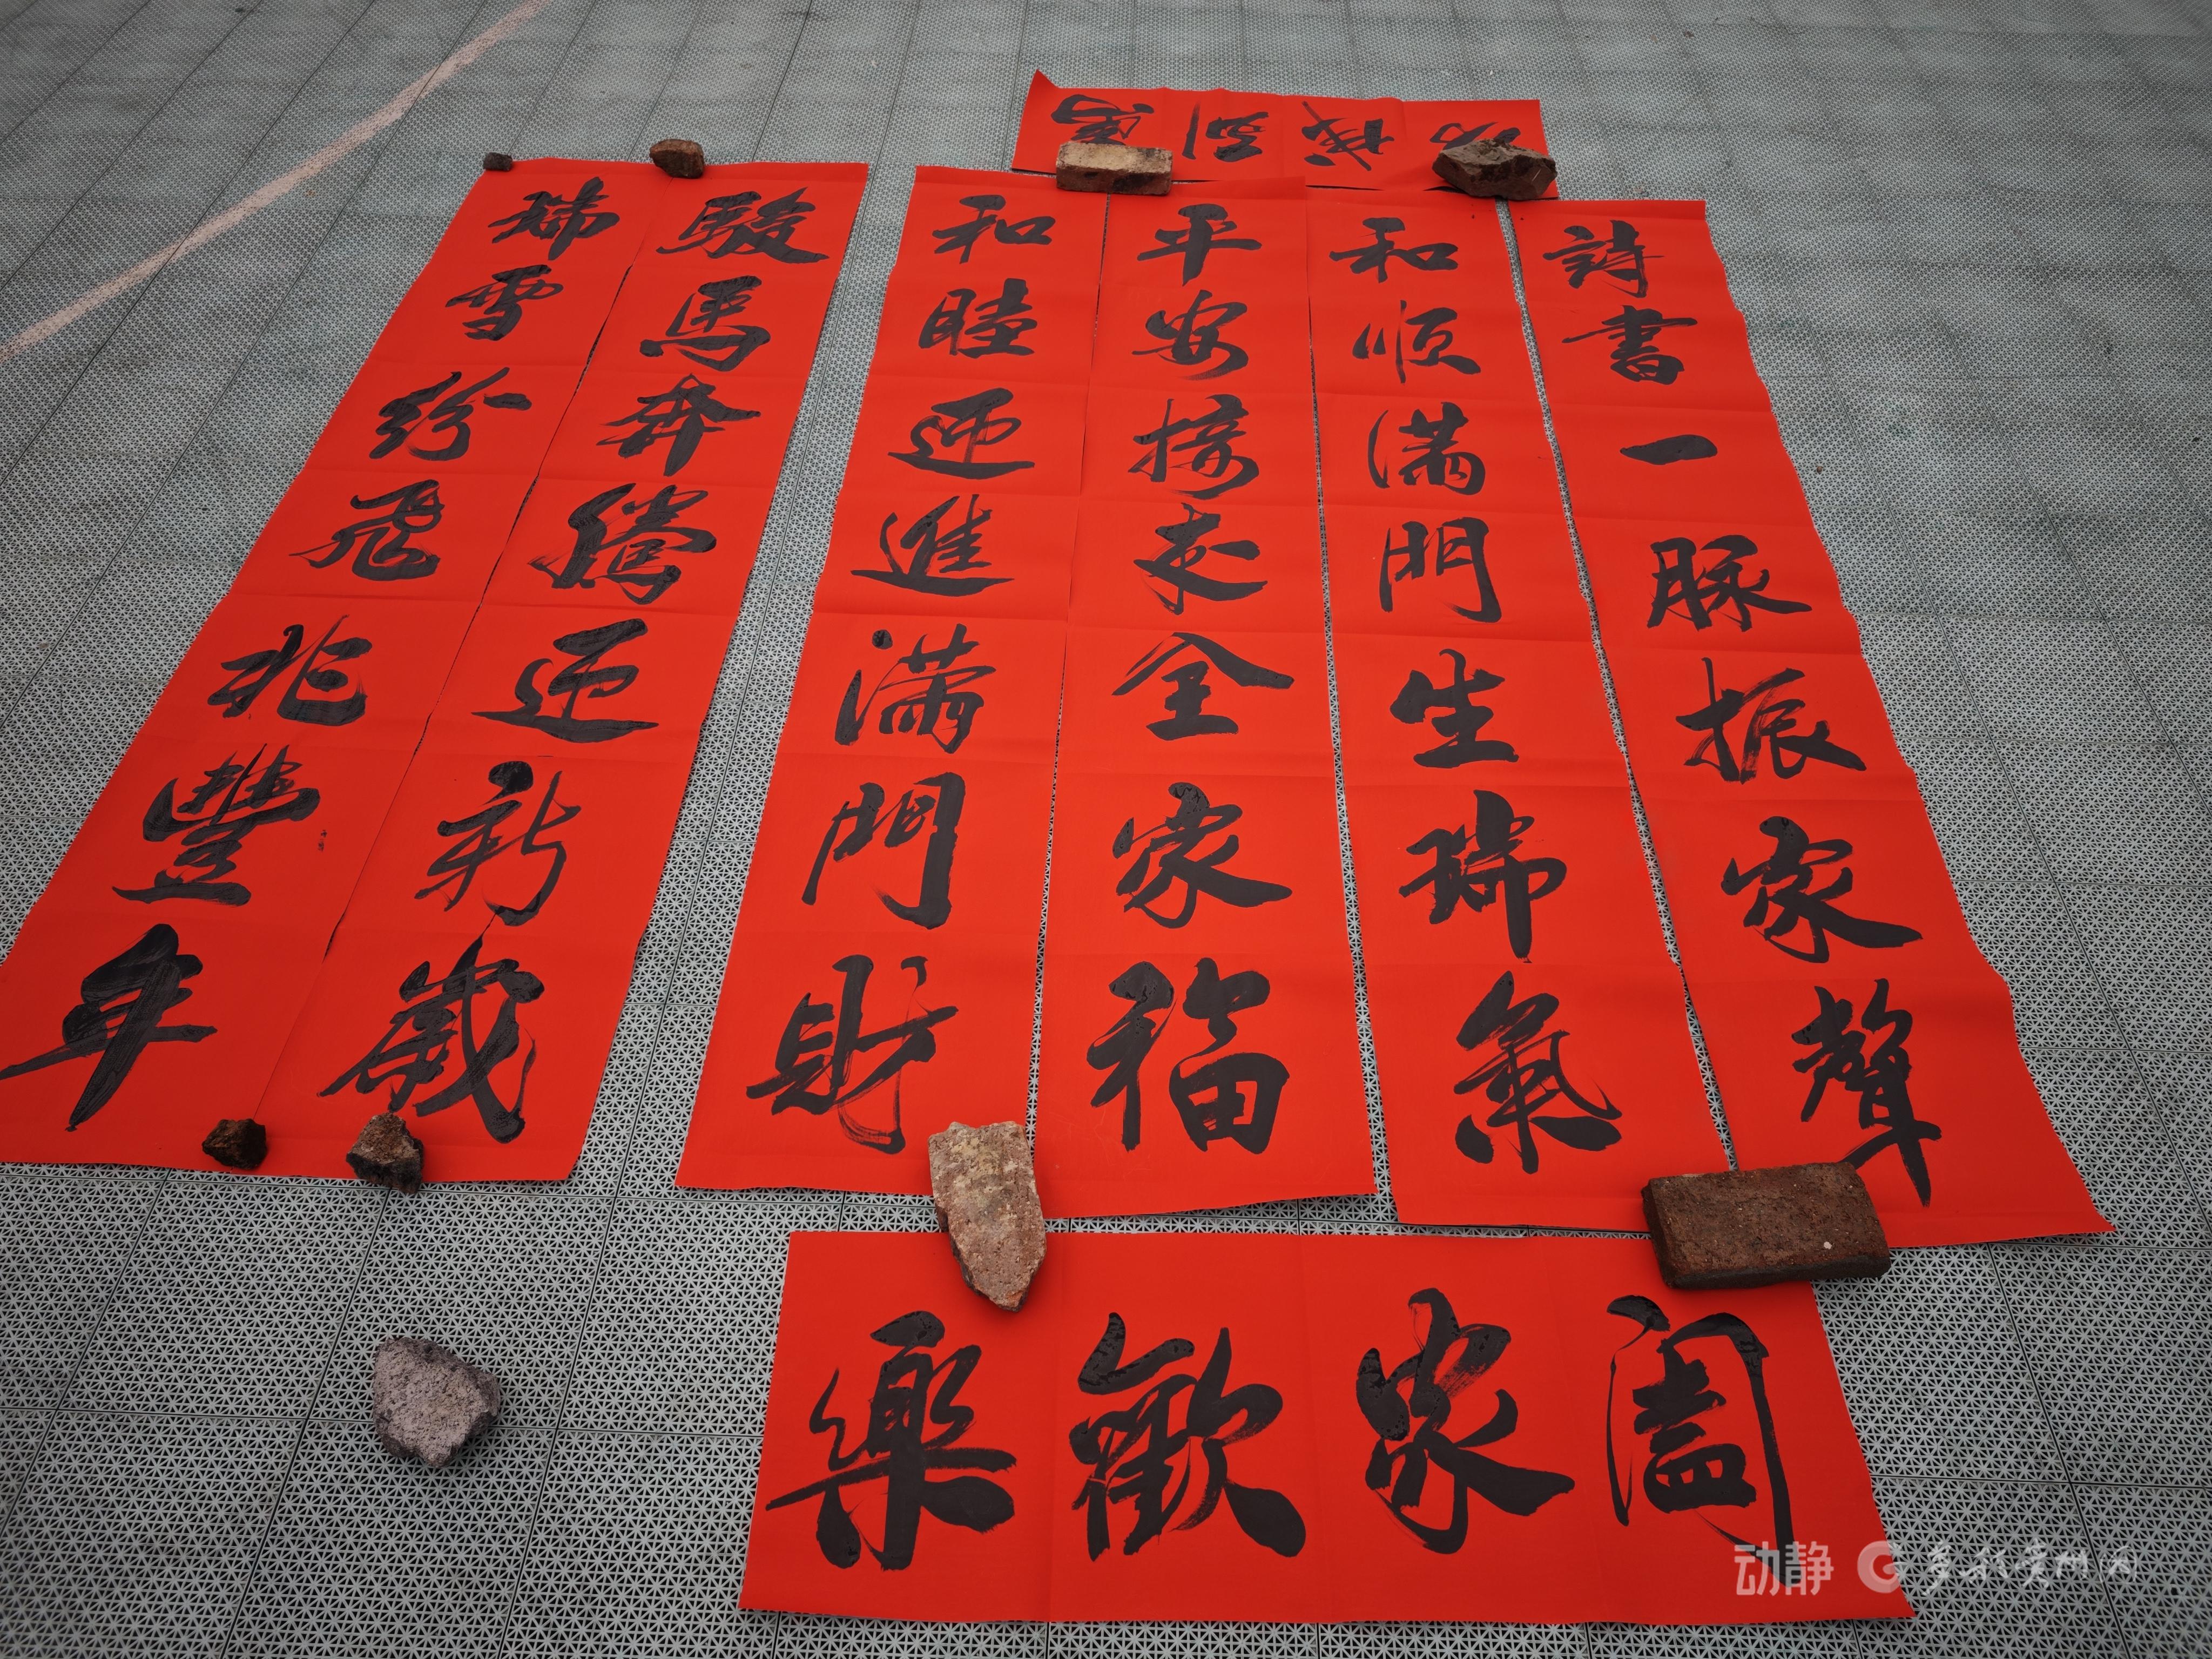 馬到成功
詩書一脉振家聲
和順滿門生瑞氣
平安接来全家福
和睦迎進滿門財
駿馬奔騰迎新歲
瑞雪紛飛兆豐年
闔家歡樂
动静 多彩贵州网